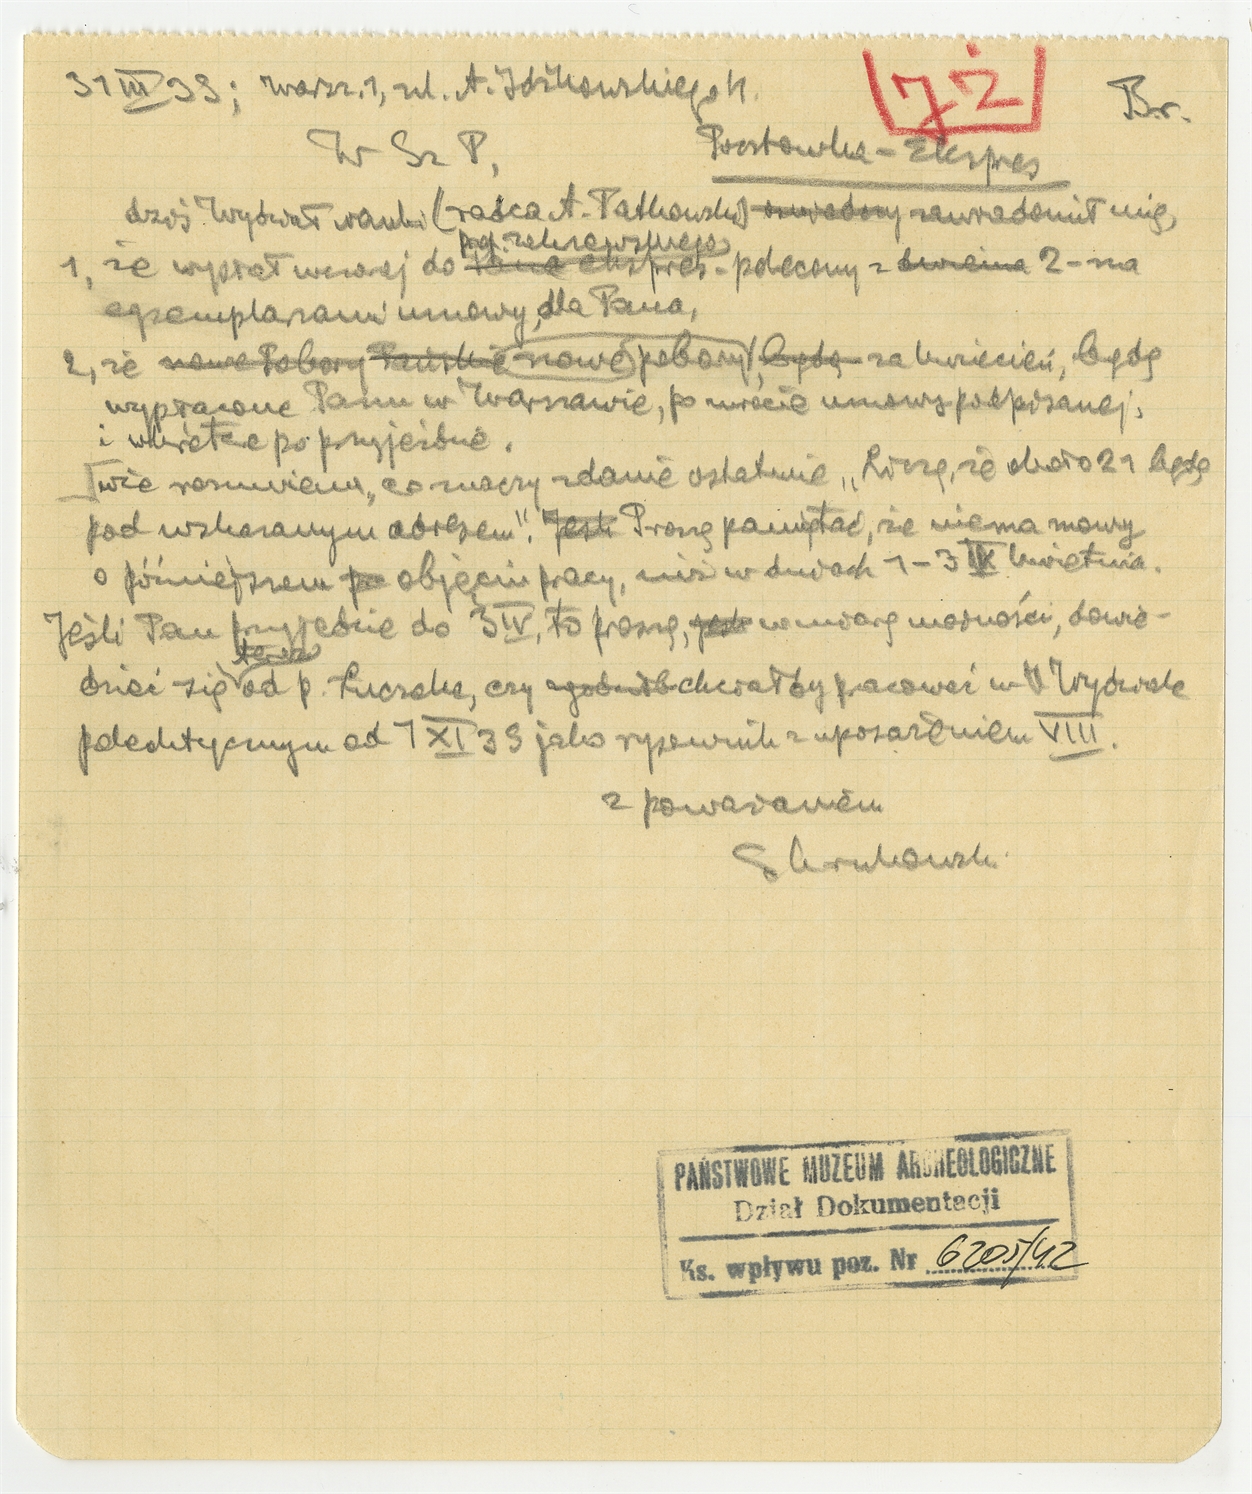 31 III 39; Warsz. 1, ul. A. Idzikowskiego 4.
JŻ
Br.
W Sz P,
Pocztówka - Ekspres
dziś Wydział nauki (radca A. Patkowski) zawiadomił mię,
1, że wysłał wczoraj do prof. Zakrzewskiego ekspres - polecony z 2-ma
egzemplarzami umowy, dla Pana,
2, że nowe Pobory Pańskie nowe pobory, będą za kwiecień, będą
wypłacone Panu w Warszawie, po zwrocie umowy podpisanej,
i wkrótce po przyjeździe.
Nie rozumiem, co znaczy zdanie ostatnie "Liczę, że około 21 będę
pod wskazanym adresem". Jeśli Proszę pamiętać, że niema mowy
o późniejszem objęciu pracy, niż w dniach 1-3 IV kwietnia.
Jeśli Pan przyjedzie do 3 IV, to proszę, w miarę możności, dowie-
dzieć się teraz od p. Łuczaka, czy chciałby pracować w Wydziale
dydaktycznym od 1 XI 39 jako rysownik z uposażeniem VIII.
z poważaniem
S Krukowski
PAŃSTWOWE MUZEUM ARCHEOLOGICZNE
Dział Dokumentacji
Ks. wpływu poz. Nr 6205/42